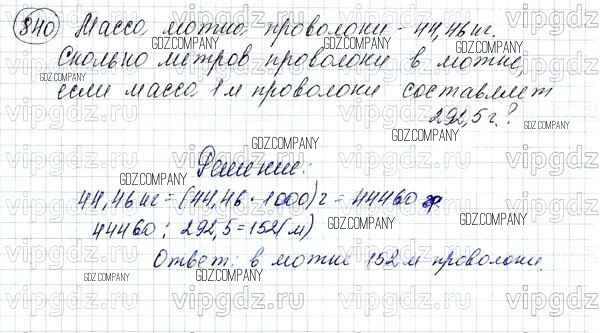 840) Масса мотка проволоки - 44,46 кг.
Сколько метров проволоки в мотке,
если масса 1 м проволоки составляет
292,5 г.?
Решение:
44,46 кг = (44,46 · 1000) г = 44460 гр.
44460 : 292,5 = 152 (м)
Ответ: в мотке 152 м проволоки.
vipgdz.ru
GDZ.COMPANY